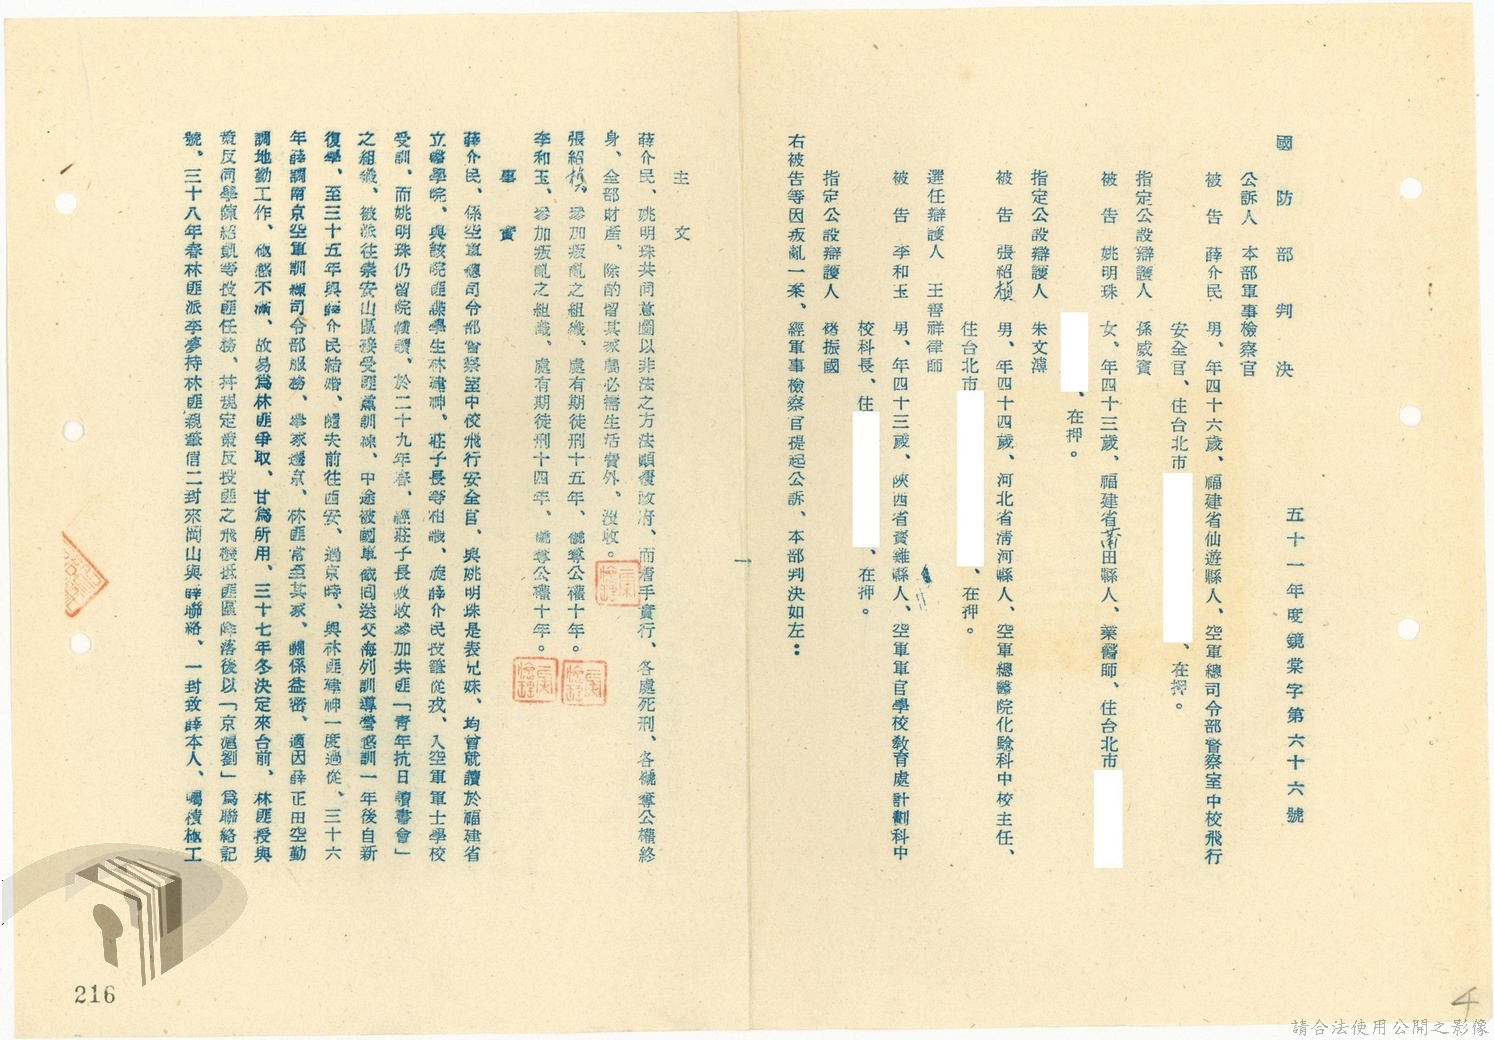 國防部判決
五十一年度鏡棠字第六十六號
公訴人 本部軍事檢察官
被告 薛介民 男、年四十六歲、福建省仙遊縣人、空軍總司令部督察室中校飛行
安全官、住台北市 、在押。
指定公設辯護人 孫威賓
被告 姚明珠 女、年四十三歲、福建省莆田縣人、業醫師、住台北市
、在押。
指定公設辯護人 朱文溥
被告 張紹楨 男、年四十四歲、河北省清河縣人、空軍總醫院化驗科中校主任、
住台北市 、在押。
選任辯護人 王善祥律師
被告 李和玉 男、年四十三歲、陝西省寶雞縣人、空軍軍官學校教育處計劃科中
校科長、住 、在押。
指定公設辯護人 振國
右被告等因叛亂一案、經軍事檢察官提起公訴、本部判決如左：
主文
薛介民、姚明珠共同意圖以非法之方法顛覆政府、而著手實行、各處死刑、各褫奪公權終
身、全部財產、除酌留其家屬必需生活費外、沒收。
張紹楨、參加叛亂之組織、處有期徒刑十五年、褫奪公權十年。
李和玉、參加叛亂之組織、處有期徒刑十四年、褫奪公權十年。
事實
薛介民、係空軍總司令部督察室中校飛行安全官、與姚明珠是表兄妹、均曾就讀於福建省
立醫學院、與該院匪諜學生林建神、莊子長等相識、旋薛介民投筆從戎、入空軍軍士學校
受訓、而姚明珠仍留院續讀、於二十九年春、經莊子長吸收參加共匪「青年抗日讀書會」
之組織、被派往崇安山區接受匪黨訓練、中途被國軍截回送交海列訓導營感訓一年後自新
復學、至三十五年與薛介民結婚、隨夫前往西安、過京時、與林匪建神一度過從、三十六
年薛調南京空軍訓練司令部服務、舉家遷京、林匪常至其家、關係益密、適因薛正由空勤
調地勤工作、極感不滿、故易為林匪爭取、甘為所用、三十七年冬決定來台前、林匪授與
策反同學陳紹凱等投匪任務、并規定策反投匪之飛機抵匪區降落後以「京滬劉」為聯絡記
號、三十八年春林匪派李夢持林匪親筆信二封來岡山與薛聯絡、一封致薛本人、囑積極工
一
216
請合法使用公開之影像